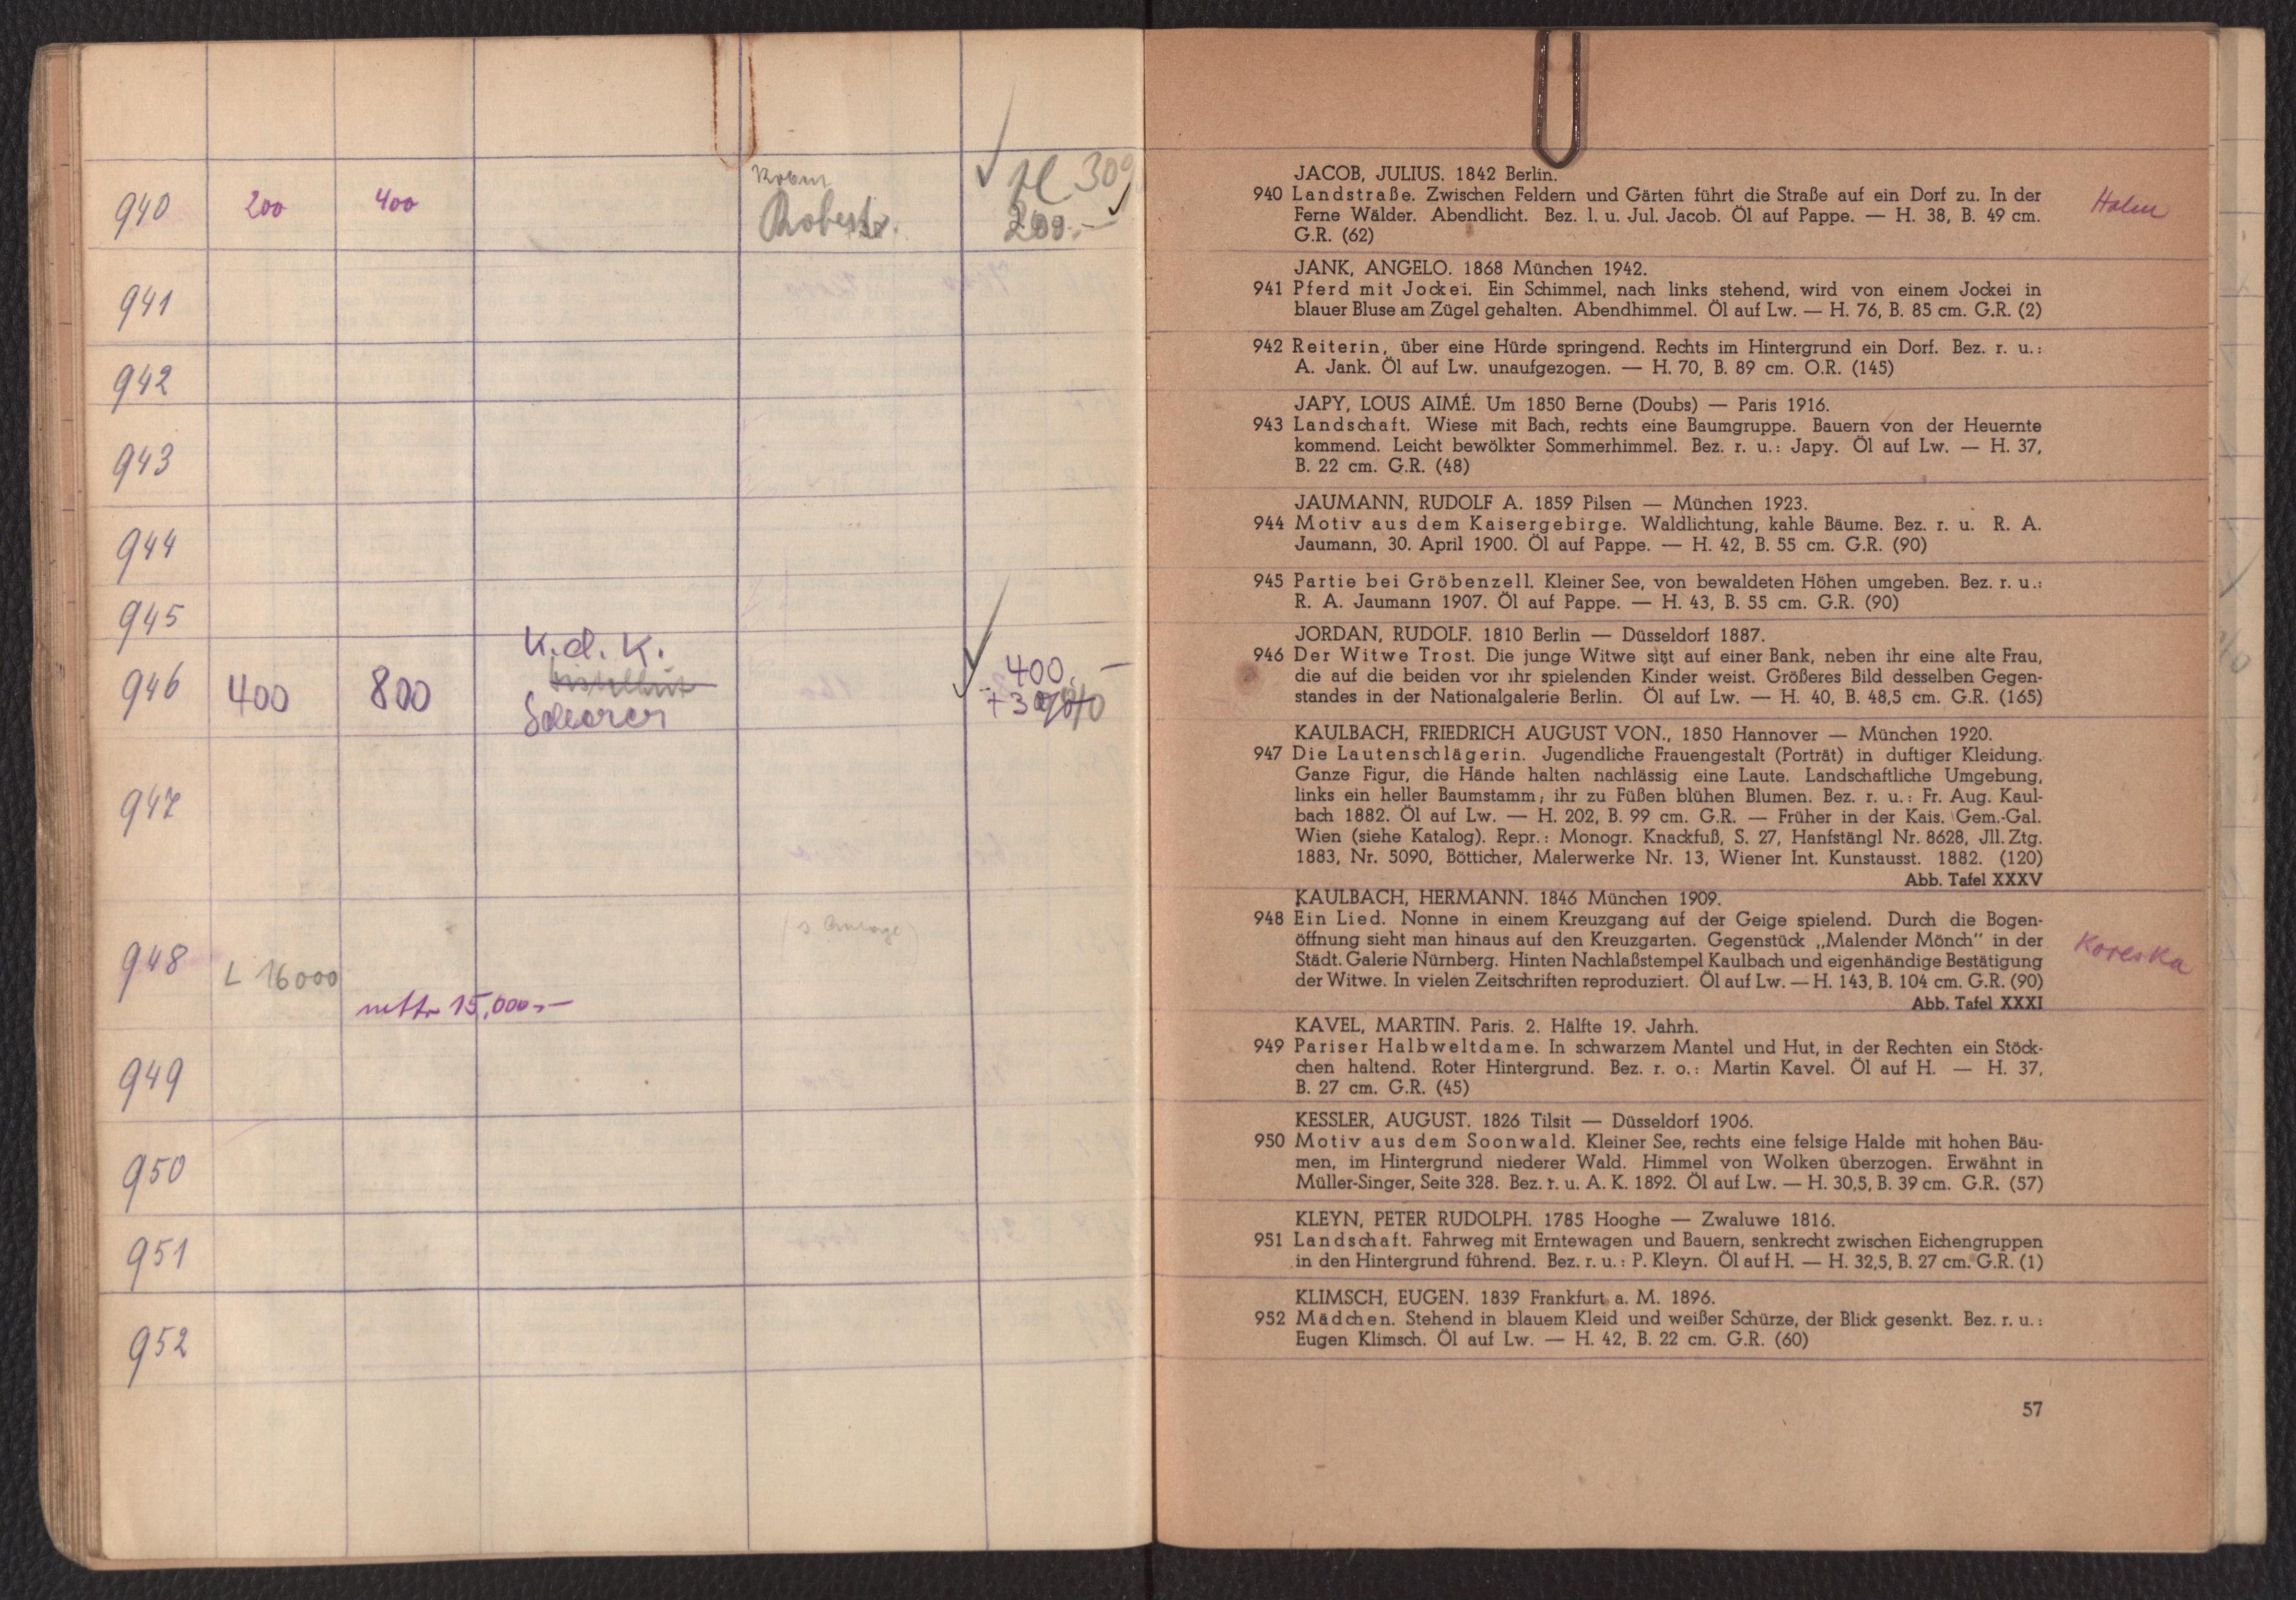 940 200 400 Robert
H 309
200.-
941
942
943
944
945
946 400 800 K.d.K. 400.-
Scherer + 3%
947
948 L 16000
netto 15,000.-
949
950
951
952
JACOB, JULIUS. 1842 Berlin.
940 Landstraße. Zwischen Feldern und Gärten führt die Straße auf ein Dorf zu. In der Halm
Ferne Wälder. Abendlicht. Bez. l. u. Jul. Jacob. Öl auf Pappe. — H. 38, B. 49 cm.
G.R. (62)
JANK, ANGELO. 1868 München 1942.
941 Pferd mit Jockei. Ein Schimmel, nach links stehend, wird von einem Jockei in
blauer Bluse am Zügel gehalten. Abendhimmel. Öl auf Lw. — H. 76, B. 85 cm. G.R. (2)
942 Reiterin, über eine Hürde springend. Rechts im Hintergrund ein Dorf. Bez. r. u.:
A. Jank. Öl auf Lw. unaufgezogen. — H. 70, B. 89 cm. O.R. (145)
JAPY, LOUS AIMÉ. Um 1850 Berne (Doubs) — Paris 1916.
943 Landschaft. Wiese mit Bach, rechts eine Baumgruppe. Bauern von der Heuernte
kommend. Leicht bewölkter Sommerhimmel. Bez. r. u.: Japy. Öl auf Lw. — H. 37,
B. 22 cm. G.R. (48)
JAUMANN, RUDOLF A. 1859 Pilsen — München 1923.
944 Motiv aus dem Kaisergebirge. Waldlichtung, kahle Bäume. Bez. r. u. R. A.
Jaumann, 30. April 1900. Öl auf Pappe. — H. 42, B. 55 cm. G.R. (90)
945 Partie bei Gröbenzell. Kleiner See, von bewaldeten Höhen umgeben. Bez. r. u.:
R. A. Jaumann 1907. Öl auf Pappe. — H. 43, B. 55 cm. G.R. (90)
JORDAN, RUDOLF. 1810 Berlin — Düsseldorf 1887.
946 Der Witwe Trost. Die junge Witwe sitzt auf einer Bank, neben ihr eine alte Frau,
die auf die beiden vor ihr spielenden Kinder weist. Größeres Bild desselben Gegen-
standes in der Nationalgalerie Berlin. Öl auf Lw. — H. 40, B. 48,5 cm. G.R. (165)
KAULBACH, FRIEDRICH AUGUST VON., 1850 Hannover — München 1920.
947 Die Lautenschlägerin. Jugendliche Frauengestalt (Porträt) in duftiger Kleidung.
Ganze Figur, die Hände halten nachlässig eine Laute. Landschaftliche Umgebung,
links ein heller Baumstamm; ihr zu Füßen blühen Blumen. Bez. r. u.: Fr. Aug. Kaul-
bach 1882. Öl auf Lw. — H. 202, B. 99 cm. G.R. — Früher in der Kais. Gem.-Gal.
Wien (siehe Katalog). Repr.: Monogr. Knackfuß, S. 27, Hanfstängl Nr. 8628, Jll. Ztg.
1883, Nr. 5090, Bötticher, Malerwerke Nr. 13, Wiener Int. Kunstausst. 1882. (120)
Abb. Tafel XXXV
KAULBACH, HERMANN. 1846 München 1909.
948 Ein Lied. Nonne in einem Kreuzgang auf der Geige spielend. Durch die Bogen-
öffnung sieht man hinaus auf den Kreuzgarten. Gegenstück „Malender Mönch" in der Koreska
Städt. Galerie Nürnberg. Hinten Nachlaßstempel Kaulbach und eigenhändige Bestätigung
der Witwe. In vielen Zeitschriften reproduziert. Öl auf Lw. — H. 143, B. 104 cm. G.R. (90)
Abb. Tafel XXXI
KAVEL, MARTIN. Paris. 2. Hälfte 19. Jahrh.
949 Pariser Halbweltdame. In schwarzem Mantel und Hut, in der Rechten ein Stöck-
chen haltend. Roter Hintergrund. Bez. r. o.: Martin Kavel. Öl auf H. — H. 37,
B. 27 cm. G.R. (45)
KESSLER, AUGUST. 1826 Tilsit — Düsseldorf 1906.
950 Motiv aus dem Soonwald. Kleiner See, rechts eine felsige Halde mit hohen Bäu-
men, im Hintergrund niederer Wald. Himmel von Wolken überzogen. Erwähnt in
Müller-Singer, Seite 328. Bez. r. u. A. K. 1892. Öl auf Lw. — H. 30,5, B. 39 cm. G.R. (57)
KLEYN, PETER RUDOLPH. 1785 Hooghe — Zwaluwe 1816.
951 Landschaft. Fahrweg mit Erntewagen und Bauern, senkrecht zwischen Eichengruppen
in den Hintergrund führend. Bez. r. u.: P. Kleyn. Öl auf H. — H. 32,5, B. 27 cm. G.R. (1)
KLIMSCH, EUGEN. 1839 Frankfurt a. M. 1896.
952 Mädchen. Stehend in blauem Kleid und weißer Schürze, der Blick gesenkt. Bez. r. u.:
Eugen Klimsch. Öl auf Lw. — H. 42, B. 22 cm. G.R. (60)
57